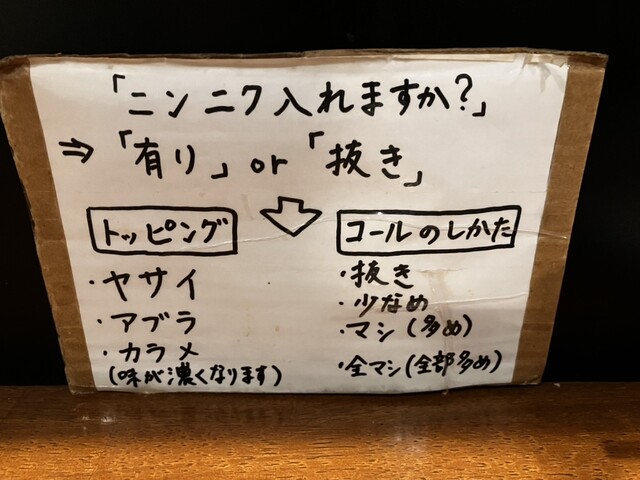 「ニンニク入れますか?」
⇒「有り」or「抜き」
トッピング
・ヤサイ
・アブラ
・カラメ
(味が濃くなります)
コールのしかた
・抜き
・少なめ
・マシ(多め)
・全マシ(全部多め)